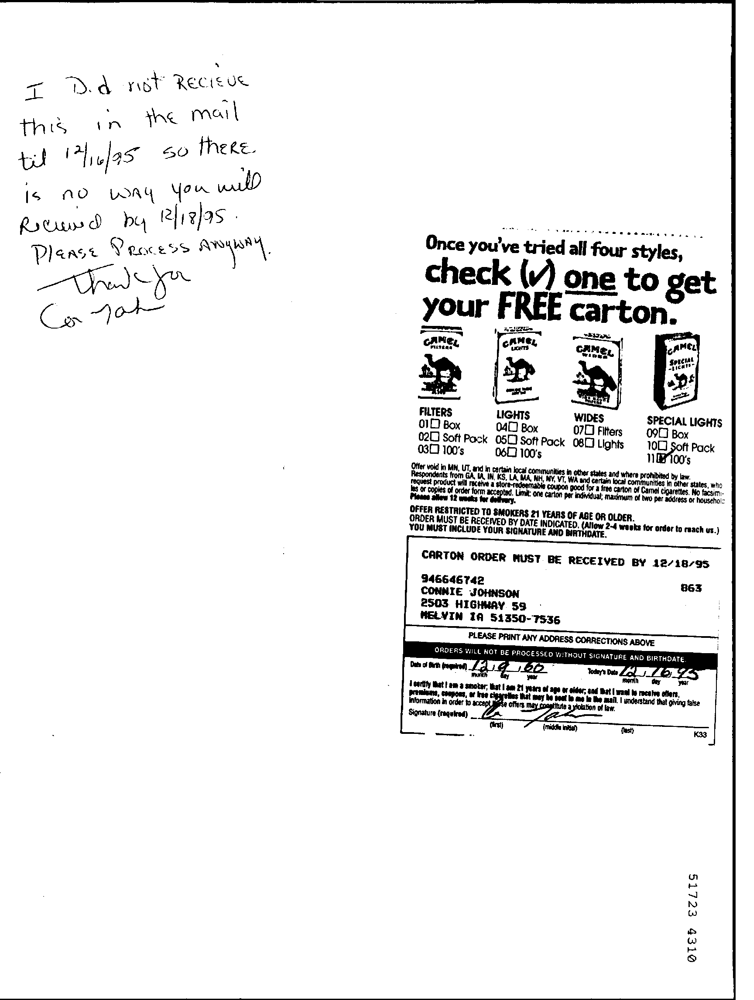 I Did not RECIEVE
this in the mail
til 12/16/95 so theRE
is no way you will
Recieved by 12/18/95.
PLEASE PROCESS ANyWAY.
Thank you
Once you've tried all four styles,
check (✓) one to get
your FREE carton.
CAMEL FILTERS
CAMEL LIGHTS
CAMEL WIDES
CAMEL SPECIAL LIGHTS
FILTERS
01☐ Box
02☐ Soft Pack
03☐ 100's
LIGHTS
04☐ Box
05☐ Soft Pack
06☐ 100's
WIDES
07☐ Filters
08☐ Lights
SPECIAL LIGHTS
09☐ Box
10☐ Soft Pack
11☑ 100's
Offer void in MN, UT, and in certain local communities in other states and where prohibited by law.
Respondents from GA, IA, IN, KS, LA, MA, NH, NY, VT, WA and certain local communities in other states, who
request product will receive a store-redeemable coupon good for a free carton of Camel cigarettes. No facsimi-
les or copies of order form accepted. Limit: one carton per individual; maximum of two per address or household.
Please allow 12 weeks for delivery.
OFFER RESTRICTED TO SMOKERS 21 YEARS OF AGE OR OLDER.
ORDER MUST BE RECEIVED BY DATE INDICATED. (Allow 2-4 weeks for order to reach us.)
YOU MUST INCLUDE YOUR SIGNATURE AND BIRTHDATE.
CARTON ORDER MUST BE RECEIVED BY 12/18/95
946646742 B63
CONNIE JOHNSON
2503 HIGHWAY 59
MELVIN IA 51350-7536
PLEASE PRINT ANY ADDRESS CORRECTIONS ABOVE
ORDERS WILL NOT BE PROCESSED WITHOUT SIGNATURE AND BIRTHDATE.
Date of Birth (required) 12 9 60 Today's Date 12 16 95
month day year month day year
I certify that I am a smoker; that I am 21 years of age or older; and that I want to receive offers,
premiums, coupons, or free cigarettes that may be sent to me in the mail. I understand that giving false
information in order to accept these offers may constitute a violation of law.
Signature (required)
(first) (middle initial) (last)
K33
51723 4310